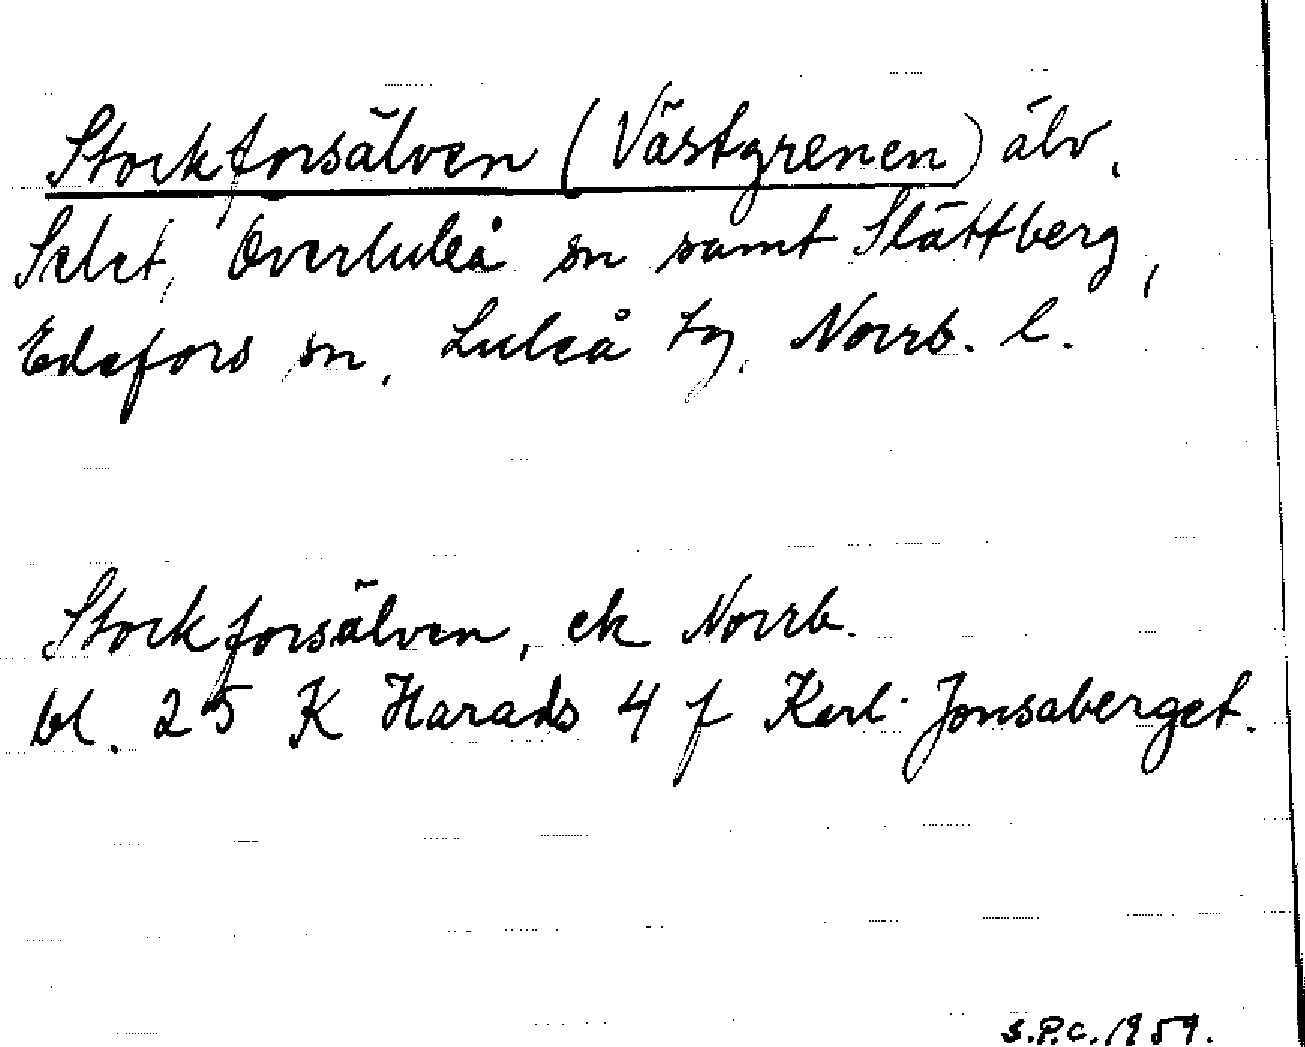 Stockforsälven (Västgrenen) älv,
Selet, Överluleå sn samt Slättberg,
Edefors sn, Luleå tg, Norrb. l.
Stockforsälven, ek Norrb.
bl. 25 K Harads 4 f Karl-Jonsaberget.
S.P.C. 1959.